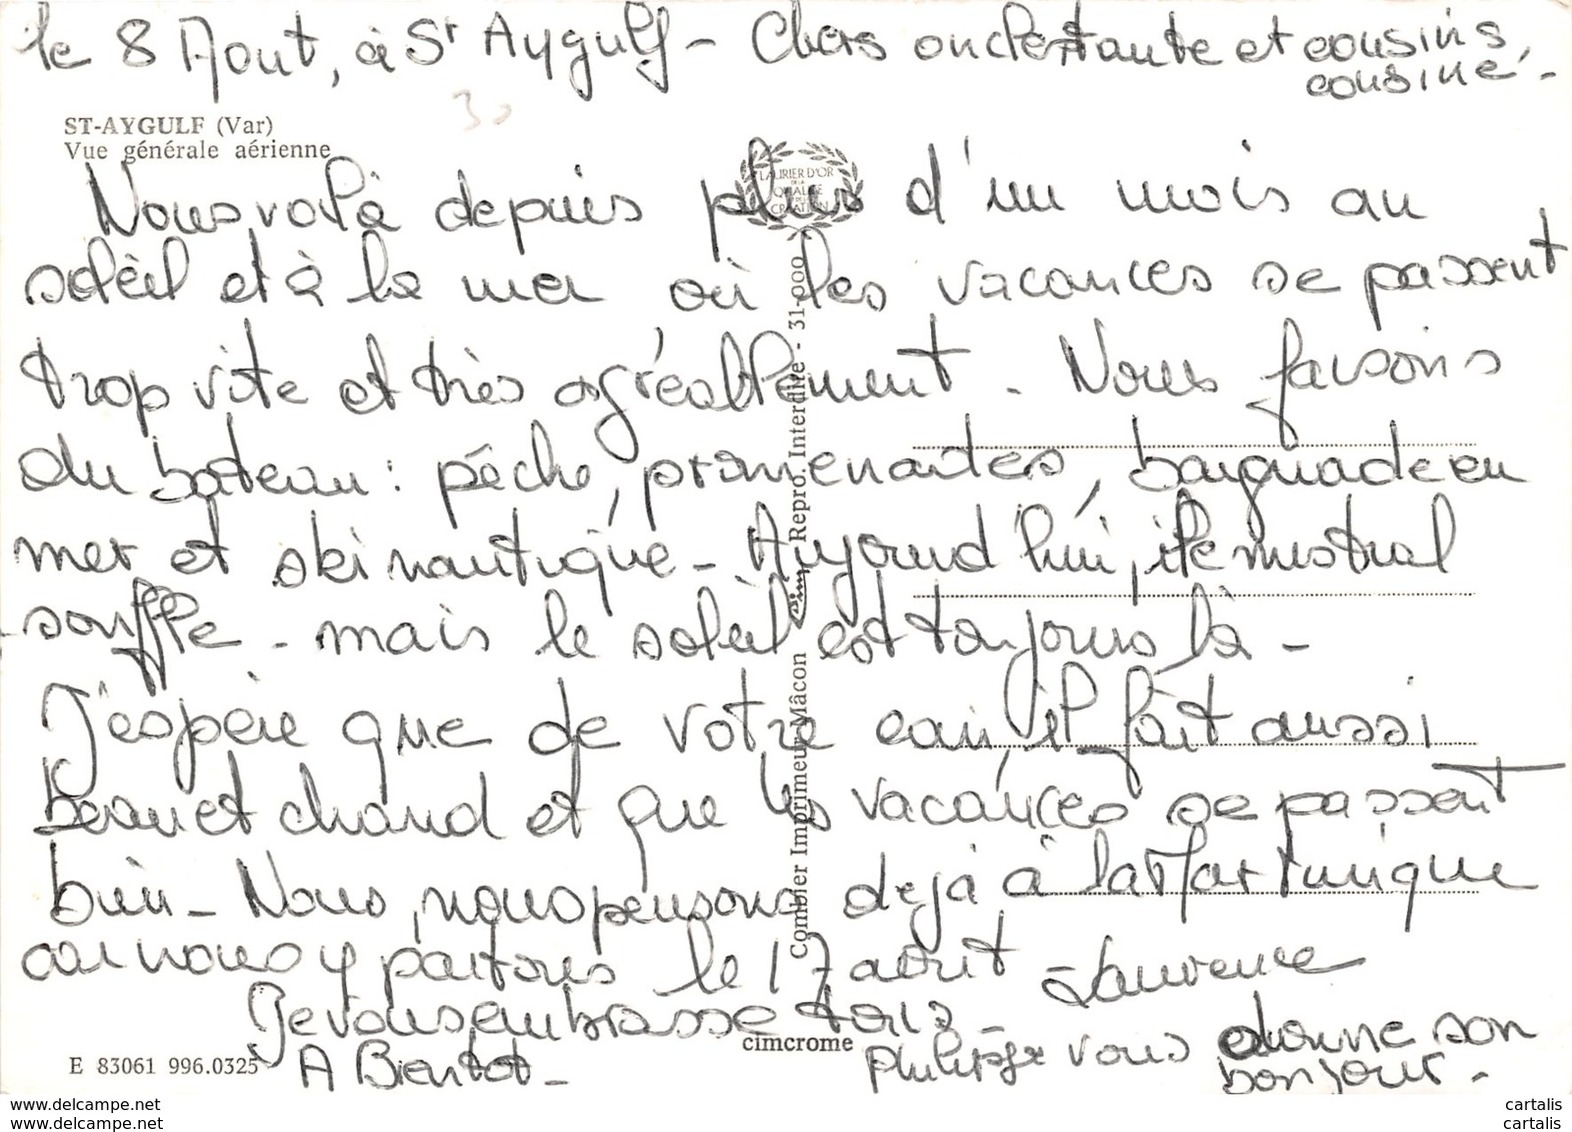 le 8 Aout, à St Aygulf - Chers oncle tante et cousins,
cousine -
30
ST-AYGULF (Var)
Vue générale aérienne
LAURIER D'OR
DE LA
QUALITÉ
CRÉATION
Nous voilà depuis plus d'un mois au
soleil et à la mer où les vacances se passent
trop vite et très agréablement. Nous faisons
du bateau : pêche, promenades, baignade en
mer et ski nautique - Aujourd'hui, le mistral
souffle - mais le soleil est toujours là -
J'espère que de votre côté, il fait aussi
beau et chaud et que les vacances se passent
bien - Nous, nous pensons déjà à la Martinique
car nous y partons le 17 août - Laurence
Je vous embrasse tous -
A Bientot -
Philippe vous donne son
bonjour -
Combier Imprimeur Mâcon Cim Repro. Interdite - 31-000
E 83061 996.0325
cimcrome
www.delcampe.net cartalis
www.delcampe.net cartalis